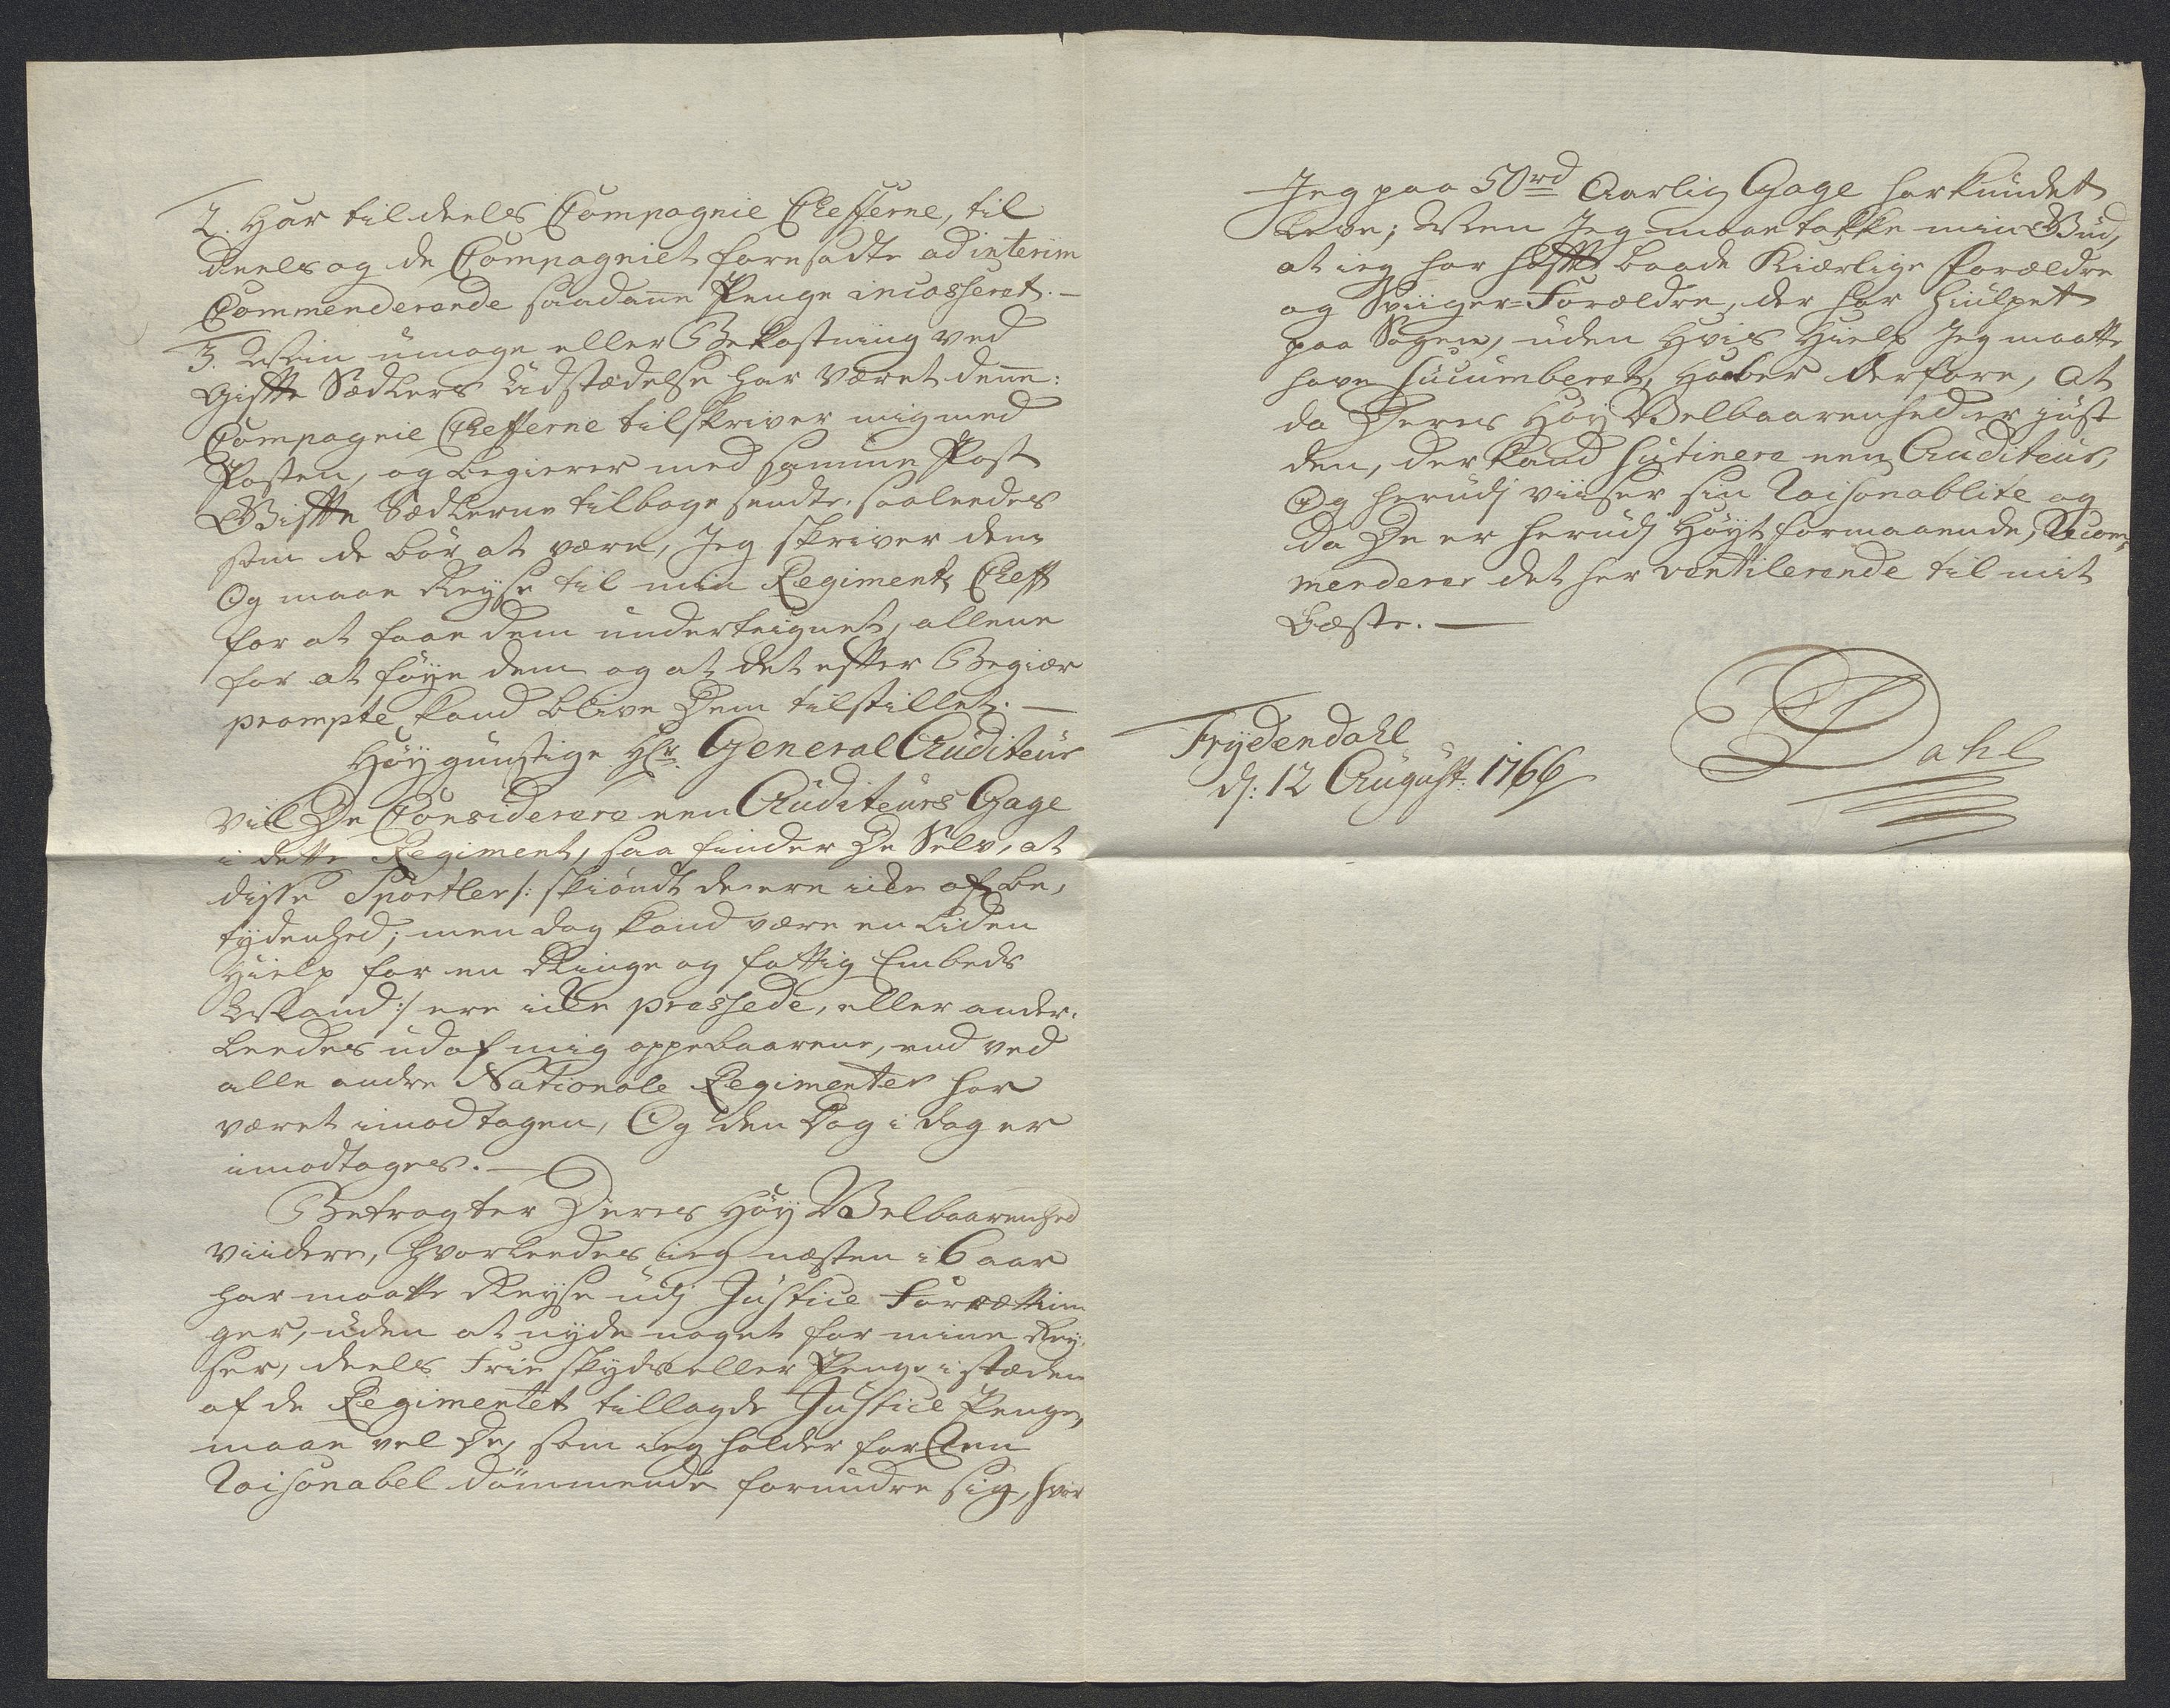 2. Har til deels Compagnie Chefferne, til
deels og de Compagniet foresadte ad interim
Commenderende saadanne Penge incasseret. —
3. Min umage eller Bekostning ved
Gifte Sædlers Udstædelse har været denne:
Compagnie Chefferne tilskriver mig med
Posten, og begierer med samme Post
Gifte Sædlerne tilbage sendte. saaleedes
som de bör at være, Jeg skriver dem
Og maae Reyse til min Regiments Cheff
for at faae dem underteignet, allene
for at föye dem og at det efter Begiær
prompte kand blive Dem tilstillet. —
Höygunstige Hr. General Auditeur
vill De Considerere een Auditeurs Gage
i dette Regiment, saa finder De Selv, at
disse Sportler /: skiöndt de ere icke af be,
tydenhed; men dog kand være en Liden
Hielp for en Ringe og fattig Embeds
Mand :/ ere icke pressede, eller ander,
leedes ud af mig oppebaarene, end ved
alle andre Nationale Regimenter har
været imodtagen, Og den Dag i dag er
imodtages. —
Betragter Deres Höy Velbaarenhed
viidere, hvorleedes ieg næsten i 6 aar
har maatte Reyse udj Justice Forrættnin
ger, uden at nyde noget for mine Rey,
ser, deels frie skyds eller Penge i stæden
af de Regimentet tillagde Justice Penge,
maae vel De, som ieg holder for Een
Raisonabel dömmende forundre sig, hvor
Jeg paa 50 rd Aarlig Gage har kundet
Leve; Men Jeg maae takke min Gud,
at ieg har hafft baade Kiærlige Forældre
og Sviiger=Forældre, der har hiulpet
paa Sagen, uden Hvis Hielp Jeg maatte
have sucumberet, Haaber derfore, at
da Deres Höy Velbaarenhed er just
den, der kand sutinere een Auditeur,
Og herudj viiser sin Raisonablite og
da De er herudj Höyt formaaende, Recom,
menderer det her ventilerende til mit
Bæste. —
Frydendahl
d: 12 August: 1766
Dahl